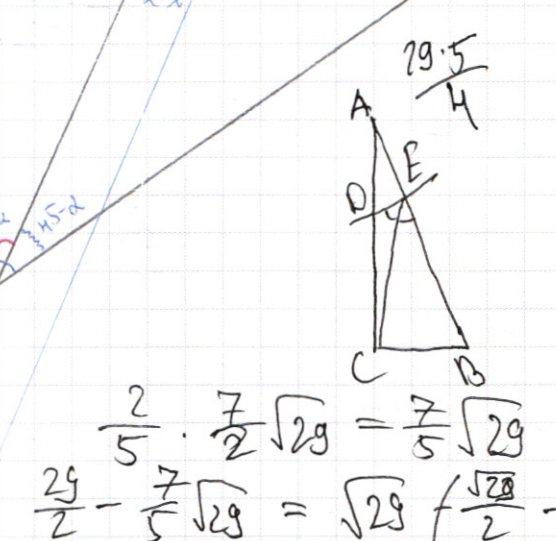 29·5
4
A
E
D
45-α
C B
2/5 · 7/2 √29 = 7/5 √29
29/2 - 7/5 √29 = √29 (√29/2 -